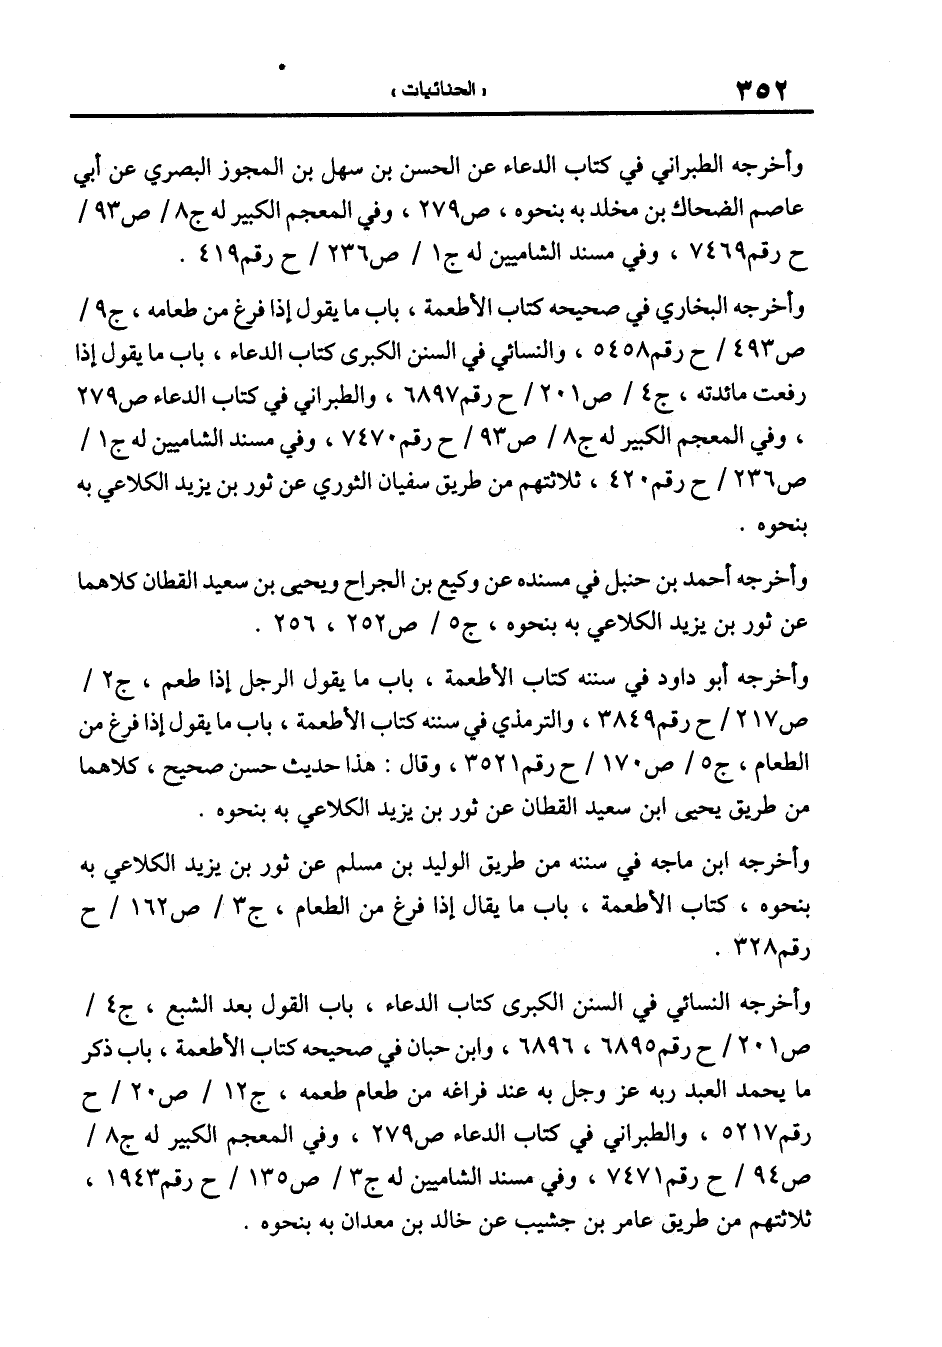 ٣٥٢ «الحنائيات»
وأخرجه الطبراني في كتاب الدعاء عن الحسن بن سهل بن المجوز البصري عن أبي
عاصم الضحاك بن مخلد به بنحوه ، ص٢٧٩ ، وفي المعجم الكبير له ج٨/ ص٩٣/
ح رقم٧٤٦٩ ، وفي مسند الشاميين له ج١ / ص٢٣٦ / ح رقم٤١٩ .
وأخرجه البخاري في صحيحه كتاب الأطعمة ، باب ما يقول إذا فرغ من طعامه ، ج٩/
ص٤٩٣/ ح رقم٥٤٥٨ ، والنسائي في السنن الكبرى كتاب الدعاء ، باب ما يقول إذا
رفعت مائدته ، ج٤ / ص٢٠١/ ح رقم٦٨٩٧ ، والطبراني في كتاب الدعاء ص٢٧٩
، وفي المعجم الكبير له ج٨/ ص٩٣/ ح رقم٧٤٧٠ ، وفي مسند الشاميين له ج١/
ص٢٣٦/ ح رقم٤٢٠ ، ثلاثتهم من طريق سفيان الثوري عن ثور بن يزيد الكلاعي به
بنحوه .
وأخرجه أحمد بن حنبل في مسنده عن وكيع بن الجراح ويحيى بن سعيد القطان كلاهما
عن ثور بن يزيد الكلاعي به بنحوه ، ج٥ / ص٢٥٢ ، ٢٥٦ .
وأخرجه أبو داود في سننه كتاب الأطعمة ، باب ما يقول الرجل إذا طعم ، ج٢ /
ص٢١٧/ ح رقم٣٨٤٩ ، والترمذي في سننه كتاب الأطعمة ، باب ما يقول إذا فرغ من
الطعام ، ج٥/ ص١٧٠/ ح رقم٣٥٢١ ، وقال : هذا حديث حسن صحيح ، كلاهما
من طريق يحيى ابن سعيد القطان عن ثور بن يزيد الكلاعي به بنحوه .
وأخرجه ابن ماجه في سننه من طريق الوليد بن مسلم عن ثور بن يزيد الكلاعي به
بنحوه ، كتاب الأطعمة ، باب ما يقال إذا فرغ من الطعام ، ج٣ / ص١٦٢ / ح
رقم٣٢٨ .
وأخرجه النسائي في السنن الكبرى كتاب الدعاء ، باب القول بعد الشبع ، ج٤ /
ص٢٠١/ ح رقم٦٨٩٥ ، ٦٨٩٦ ، وابن حبان في صحيحه كتاب الأطعمة ، باب ذكر
ما يحمد العبد ربه عز وجل به عند فراغه من طعام طعمه ، ج١٢ / ص٢٠ / ح
رقم٥٢١٧ ، والطبراني في كتاب الدعاء ص٢٧٩ ، وفي المعجم الكبير له ج٨/
ص٩٤/ ح رقم٧٤٧١ ، وفي مسند الشاميين له ج٣/ ص١٣٥ / ح رقم١٩٤٣ ،
ثلاثتهم من طريق عامر بن جشيب عن خالد بن معدان به بنحوه .